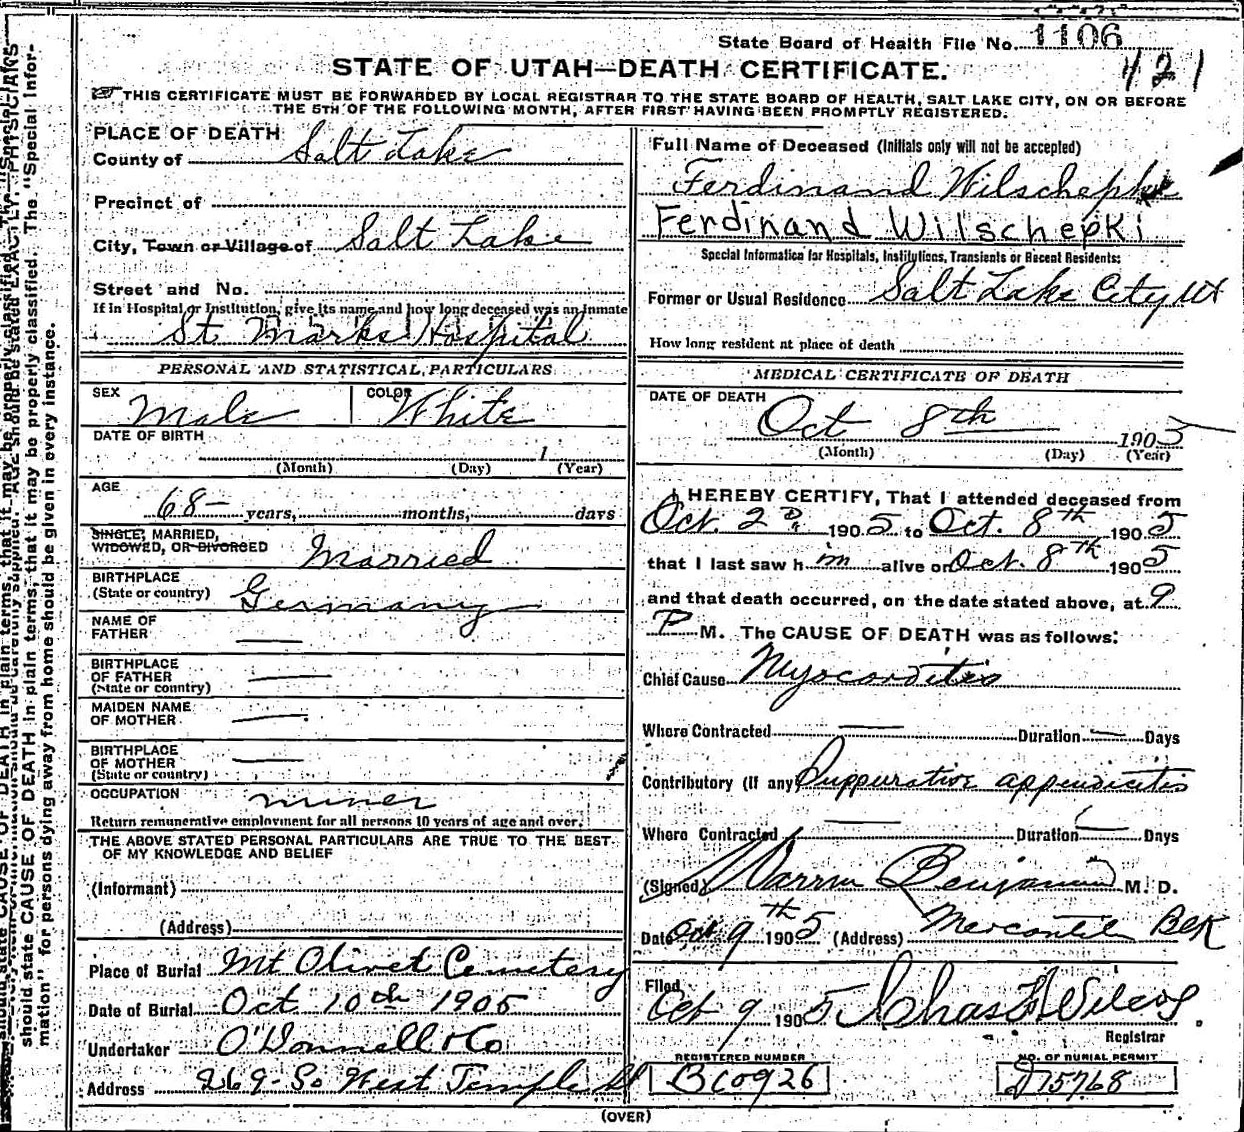 State Board of Health File No. 1106
421
STATE OF UTAH—DEATH CERTIFICATE.
THIS CERTIFICATE MUST BE FORWARDED BY LOCAL REGISTRAR TO THE STATE BOARD OF HEALTH, SALT LAKE CITY, ON OR BEFORE
THE 5TH OF THE FOLLOWING MONTH, AFTER FIRST HAVING BEEN PROMPTLY REGISTERED.
PLACE OF DEATH
County of Salt Lake
Precinct of
City, Town or Village of Salt Lake
Street and No.
If in Hospital or Institution, give its name and how long deceased was an Inmate
St Marks Hospital
PERSONAL AND STATISTICAL PARTICULARS
SEX Male COLOR White
DATE OF BIRTH
1
(Month) (Day) (Year)
AGE
68 years, months, days
SINGLE, MARRIED,
WIDOWED, OR DIVORCED Married
BIRTHPLACE
(State or country) Germany
NAME OF
FATHER
BIRTHPLACE
OF FATHER
(State or country)
MAIDEN NAME
OF MOTHER
BIRTHPLACE
OF MOTHER
(State or country)
OCCUPATION miner
Return remunerative employment for all persons 10 years of age and over.
THE ABOVE STATED PERSONAL PARTICULARS ARE TRUE TO THE BEST
OF MY KNOWLEDGE AND BELIEF
(Informant)
(Address)
Place of Burial Mt Olivet Cemetery
Date of Burial Oct 10th 1905
Undertaker O'Donnell & Co
Address 269 So West Temple St
Full Name of Deceased (Initials only will not be accepted)
Ferdinand Wilschepki
Ferdinand Wilschepki
Special Information for Hospitals, Institutions, Transients or Recent Residents:
Former or Usual Residence Salt Lake City Ut
How long resident at place of death
MEDICAL CERTIFICATE OF DEATH
DATE OF DEATH
Oct 8th 1905
(Month) (Day) (Year)
I HEREBY CERTIFY, That I attended deceased from
Oct. 2d 1905 to Oct. 8th 1905
that I last saw him alive on Oct. 8th 1905
and that death occurred, on the date stated above, at 9
P M. The CAUSE OF DEATH was as follows:
Chief Cause Myocarditis
Where Contracted Duration Days
Contributory (if any) Suppurative appendicitis
Where Contracted Duration Days
(Signed) Warren Benjamin M. D.
Date Oct 9th 1905 (Address) Mercantile Blk
Filed
Oct 9 1905 Chas F Wilcox.
Registrar
REGISTERED NUMBER NO. OF BURIAL PERMIT
B60926 D75768
(OVER)
should state CAUSE OF DEATH in plain terms, that it may be properly classified. The "Special Infor-
mation" for persons dying away from home should be given in every instance.